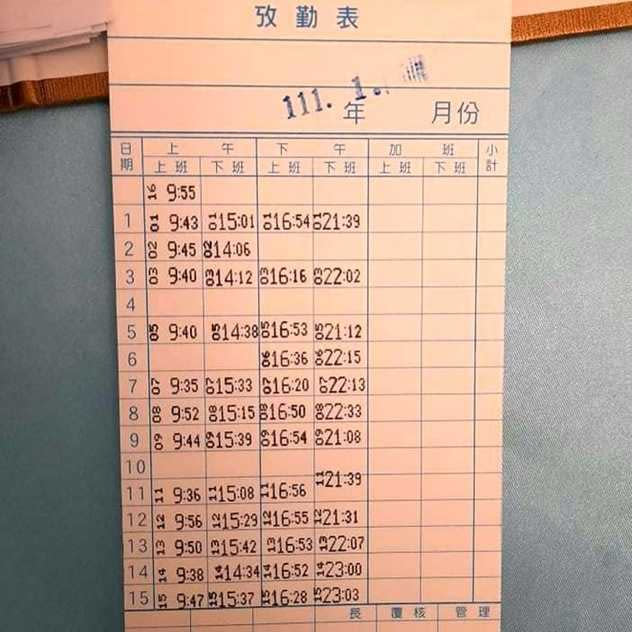 攷勤表
111. 1.
年 月份
日期 上午 下午 加班 小計
上班 下班 上班 下班 上班 下班
16 9:55
1 01 9:43 01 15:01 01 16:54 01 21:39
2 02 9:45 02 14:06
3 03 9:40 03 14:12 03 16:16 03 22:02
4
5 05 9:40 05 14:38 05 16:53 05 21:12
6 06 16:36 06 22:15
7 07 9:35 07 15:33 07 16:20 07 22:13
8 08 9:52 08 15:15 08 16:50 08 22:33
9 09 9:44 09 15:39 09 16:54 09 21:08
10
11 11 9:36 11 15:08 11 16:56 11 21:39
12 12 9:56 12 15:29 12 16:55 12 21:31
13 13 9:50 13 15:42 13 16:53 13 22:07
14 14 9:38 14 14:34 14 16:52 14 23:00
15 15 9:47 15 15:37 15 16:28 15 23:03
長 覆核 管理